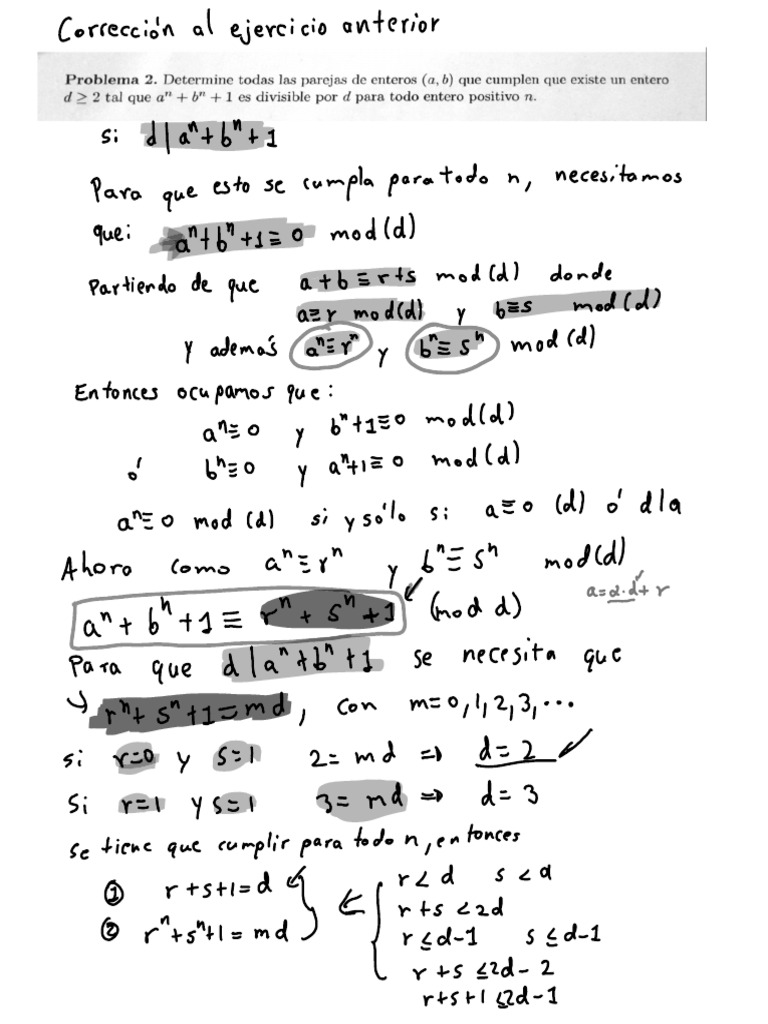 Corrección al ejercicio anterior
Problema 2. Determine todas las parejas de enteros (a, b) que cumplen que existe un entero
d ≥ 2 tal que aⁿ + bⁿ + 1 es divisible por d para todo entero positivo n.
si d | aⁿ + bⁿ + 1
Para que esto se cumpla para todo n, necesitamos
que: aⁿ + bⁿ + 1 ≡ 0 mod (d)
Partiendo de que a + b ≡ r + s mod (d) donde
a ≡ r mod (d) y b ≡ s mod (d)
Y además aⁿ ≡ rⁿ y bⁿ ≡ sⁿ mod (d)
Entonces ocupamos que:
aⁿ ≡ 0 y bⁿ + 1 ≡ 0 mod (d)
ó bⁿ ≡ 0 y aⁿ + 1 ≡ 0 mod (d)
aⁿ ≡ 0 mod (d) si y sólo si a ≡ 0 (d) ó d | a
Ahora como aⁿ ≡ rⁿ y bⁿ ≡ sⁿ mod (d)
aⁿ + bⁿ + 1 ≡ rⁿ + sⁿ + 1 (mod d)
a = α · d + r
Para que d | aⁿ + bⁿ + 1 se necesita que
↳ rⁿ + sⁿ + 1 = md, con m = 0, 1, 2, 3, ...
si r = 0 y s = 1 2 = md ⇒ d = 2 ✓
Si r = 1 y s = 1 3 = md ⇒ d = 3
Se tiene que cumplir para todo n, entonces
① r + s + 1 = d
② rⁿ + sⁿ + 1 = md
r < d s < d
r + s < 2d
r ≤ d - 1 s ≤ d - 1
r + s ≤ 2d - 2
r + s + 1 ≤ 2d - 1